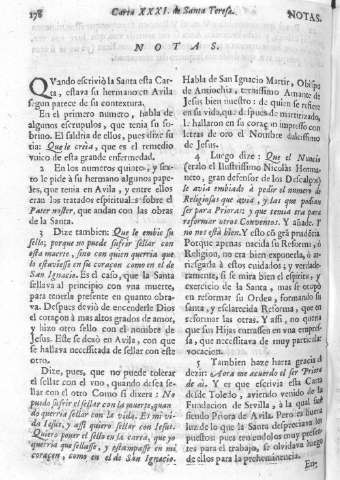 178
Carta XXXI. de Santa Teresa.
NOTAS.
NOTAS.
QVando escriviò la Santa esta Car-
ta, estava su hermano en Avila
segun parece de su contextura.
En el primero numero, habla de
algunos escrupulos, que tenia su so-
brino. El saldria de ellos, pues dize su
tia: Que le creia, que es el remedio
vnico de esta grande enfermedad.
2 En los numeros quinto, y sex-
to le pide à su hermano algunos pape-
les, que tenia en Avila, y entre ellos
eran los tratados espirituales sobre el
Pater noster, que andan con las obras
de la Santa.
3 Dize tambien: Que le embie su
sello; porque no puede sufrir sellar con
esta muerte, sino con quien querria que
lo estuviesse en su coraçon como en el de
San Ignacio. Es el caso, que la Santa
sellava al principio con vna muerte,
para tenerla presente en quanto obra-
va. Despues diviò de encenderle Dios
el coraçon à mas altos grados de amor,
y hizo otro sello con el nombre de
Jesus. Este se dexò en Avila, con que
se hallava necessitada de sellar con este
otro.
Dize, pues, que no puede tolerar
el sellar con el vno, quando desea se-
llar con el otro Como si dixera: No
puedo sufrir el sellar con la muerte, quan-
do querria sellar con la vida. Es mi vi-
da Jesus, y assi quiero sellar con Jesus.
Quiero poner el sello en la carta, que yo
querria que sellasse, y estampasse en mi
coraçon, como en el de San Ignacio.
Habla de San Ignacio Martir, Obispo
de Antiochia, ternissimo Amante de
Jesus bien nuestro: de quien se refiere
en su vida, que despues de martirizado,
le hallaron en su coraçon impresso con
letras de oro el Nombre dulcissimo
de Jesus.
4 Luego dize: Que el Nuncio
(eralo el Ilustrissimo Nicolas Horma-
neto, gran defensor de los Descalços)
le avia embiado à pedir el numero de
Religiosas que avia, y las que podian
ser para Prioras: y que temia era para
reformar otros Conventos. Y añade. Y
no nos està bien. Y esto cõ gra prudẽcia
Porque apenas nacida su Reforma, ò
Religion, no era bien exponerla, ò ar-
riesgarla à estos cuidados; y verdade-
ramente, si se mira bien el espiritu, y
exercicio de la Santa, mas se ocupò
en reformar su Orden, formando su
santa, y esclarecida Reforma, que en
reformar las otras. Y assi, no queria
que sus Hijas entrassen en vna empres-
sa, que necessitava de mayor vocacion
nueva.
5 Tambien haze harta gracia el
dezir: Aora me acuerdo al ser Priora
de aì. Y es que escrivia esta Carta
desde Toledo, aviendo venido de la
Fundacion de Sevilla, à la qual fuè
siendo Priora de Avila. Pero era buena
luz de lo que la Santa despreciava los
puestos: pues teniendolos muy presen-
tes para el trabajo, se olvidava luego
de ellos para la preheminencia.
En;